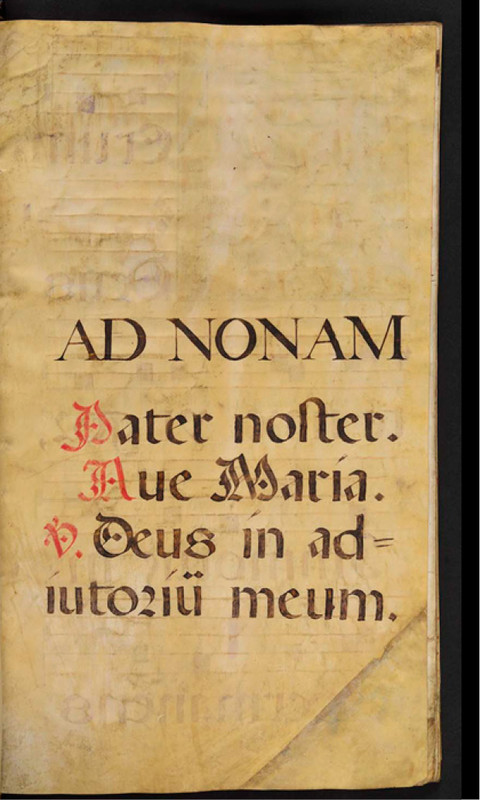 AD NONAM
Pater noſter.
Aue Maria.
℣. Deus in ad=
iutoꝛiū meum.